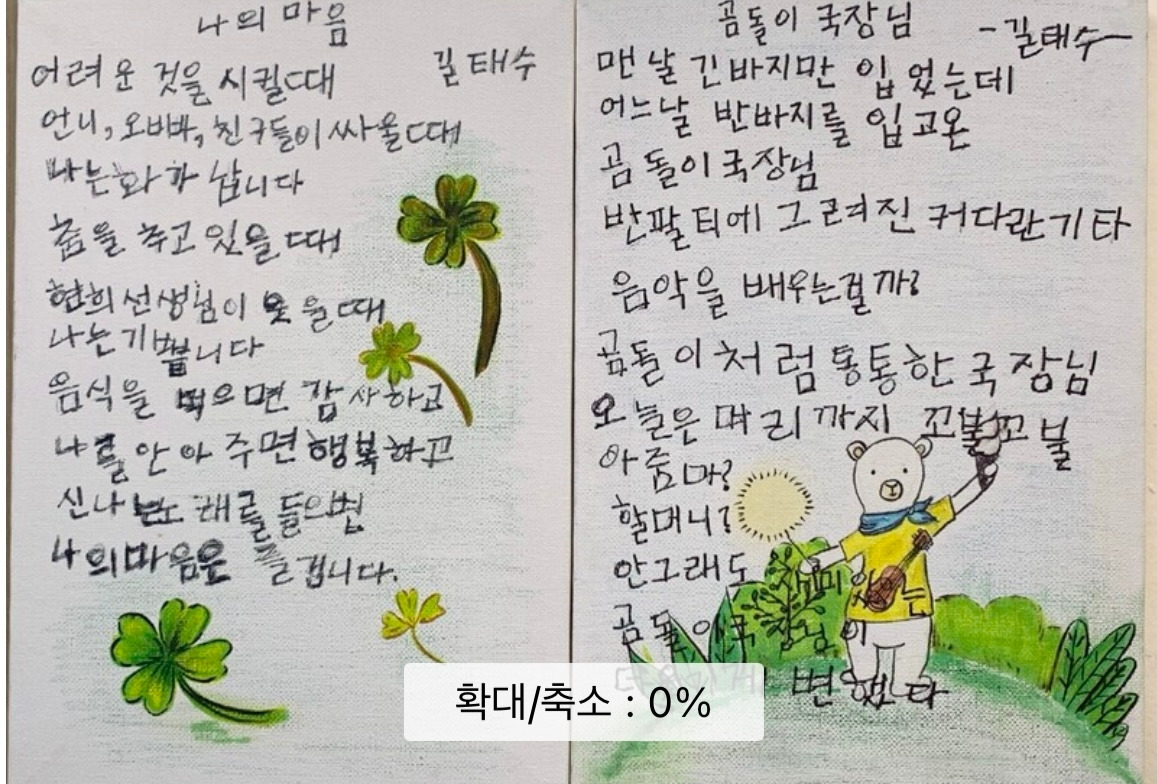 나의 마음
길태수
어려운 것을 시킬때
언니, 오빠, 친구들이 싸울때
나는 화가 납니다
춤을 추고 있을 때
현희선생님이 웃을때
나는 기쁩니다
음식을 먹으면 감사하고
나를 안아 주면 행복하고
신나는 노래를 들으면
나의마음은 즐겁니다.
곰돌이 국장님
-길태수-
맨날 긴바지만 입었는데
어느날 반바지를 입고온
곰돌이 국장님
반팔티에 그려진 커다란기타
음악을 배우는걸까?
곰돌이처럼 통통한 국장님
오늘은 머리까지 꼬불꼬불
아줌마?
할머니?
안그래도 재미있는
곰돌이국장님이
변했다
확대/축소 : 0%